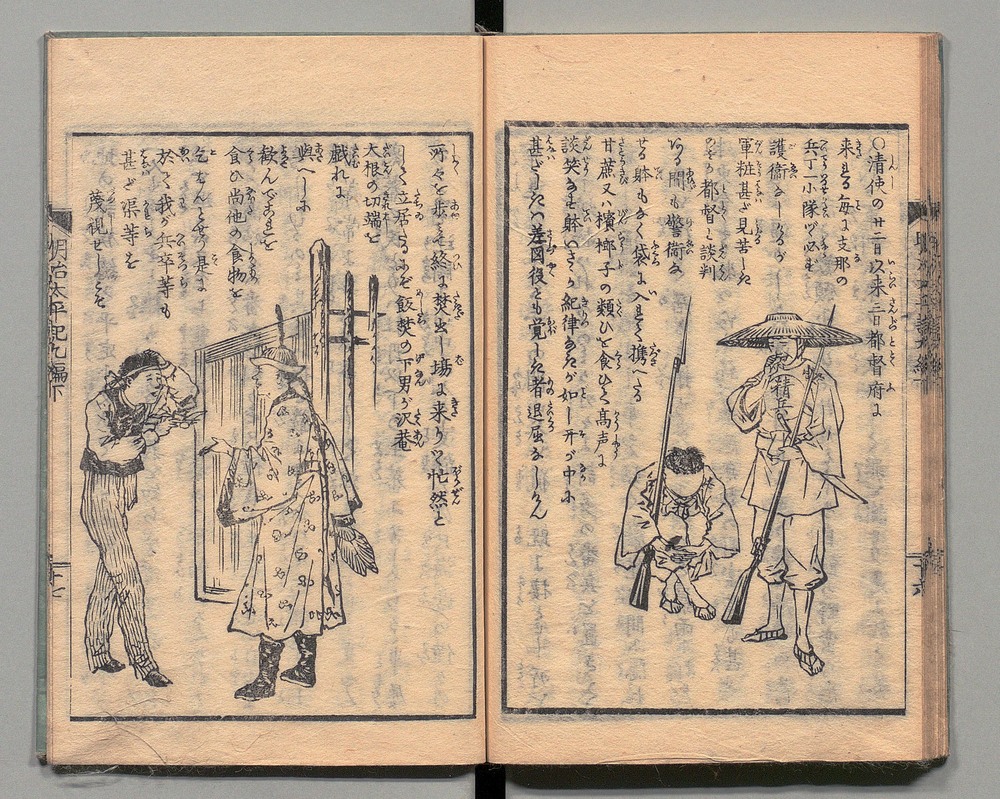 ○清使の廿二日以来三日都督府に
来る毎に支那の
兵丁一小隊ツヽ必ず
護衛なしけるが
軍粧甚ざ見苦しく
都督と談判
ある間も警衛
せる躰もなく袋に入きて携へたる
甘蔗又ハ檳榔子の類ひを食ひて高声に
談笑なし躰いさゝか紀律
甚ざしきハ差図役とも覚しき者退屈なしけん
精兵
所々を歩き終に焚出し場に来りツヽ忙然と
して立居たるにぞ飯焚の下男が沢菴
大根の切端を
戯れに
與へしに
歓んでこれを
食ひ尚他の食物を
乞もんとせり是に
於て我が兵卒等も
甚ざ渠等を
蔑視せしとぞ
明治太平記九編下